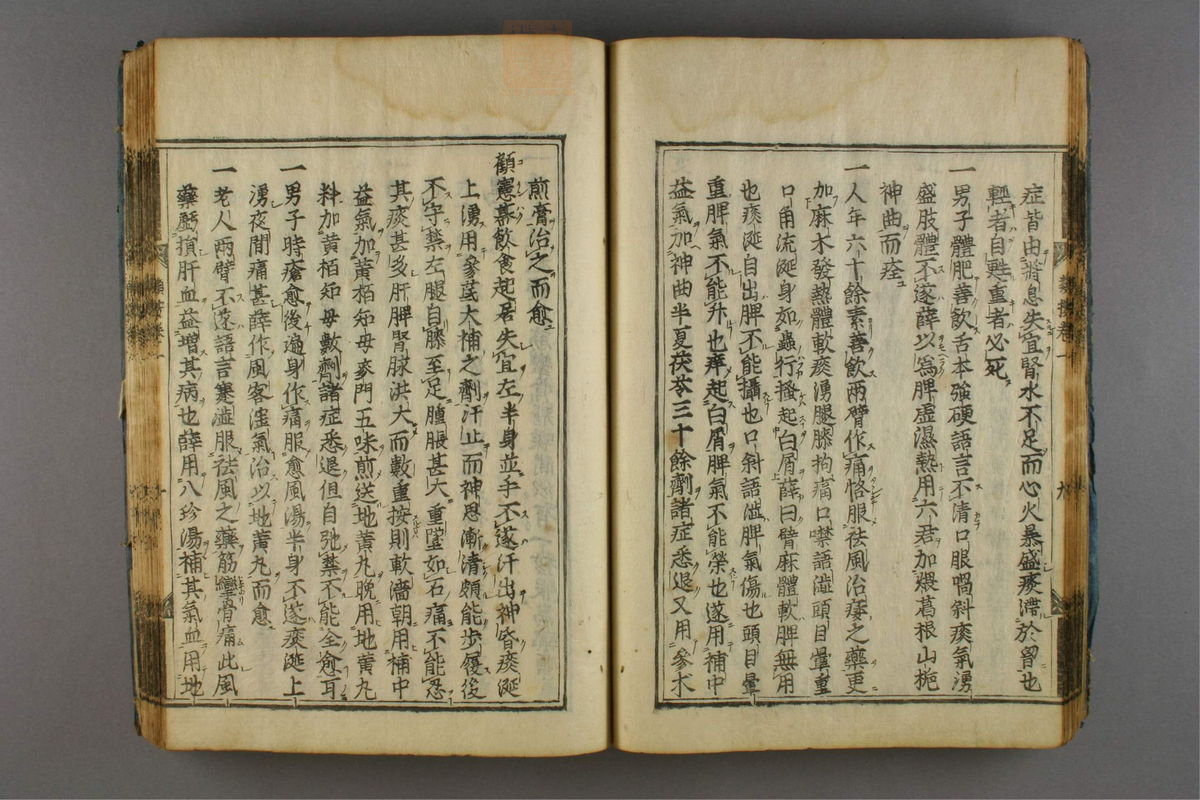 症皆由將息失宜腎水不足而心火暴盛痰滯於胷也
輕者自甦重者必死
一男子體肥善飲舌本強硬語言不清口眼喎斜痰氣湧
盛肢體不遂薛以爲脾虛濕熱用六君加煨葛根山梔
神曲而痊
一人年六十餘素善飲兩臂作痛恪服祛風治痿之藥更
加麻木發熱體軟痰湧腿膝拘痛口噤語澁頭目暈重
口角流涎身如蟲行搔起白屑薛曰臂麻體軟脾無用
也痰涎自出脾不能攝也口斜語澁脾氣傷也頭目暈
重脾氣不能升也痒起白屑脾氣不能榮也遂用補中
益氣加神曲半夏茯苓三十餘劑諸症悉退又用參朮
煎膏治之而愈
顧憲幕飲食起居失宜左半身並手不遂汗出神昏痰涎
上湧用參芪大補之劑汗止而神思漸清頗能步履後
不守禁左腿自膝至足腫脹甚大重墜如石痛不能忍
其痰甚多肝脾腎脉洪大而數重按則軟濇朝用補中
益氣加黄栢知母麥門五味煎送地黄丸晩用地黄丸
料加黄栢知母數劑諸症悉退但自弛禁不能全愈耳
一男子時瘡愈後遍身作痛服愈風湯半身不遂痰涎上
湧夜間痛甚薛作風客淫氣治以地黄丸而愈
一老人兩臂不遂語言蹇澁服祛風之藥筋攣骨痛此風
藥虧損肝血益增其病也薛用八珍湯補其氣血用地